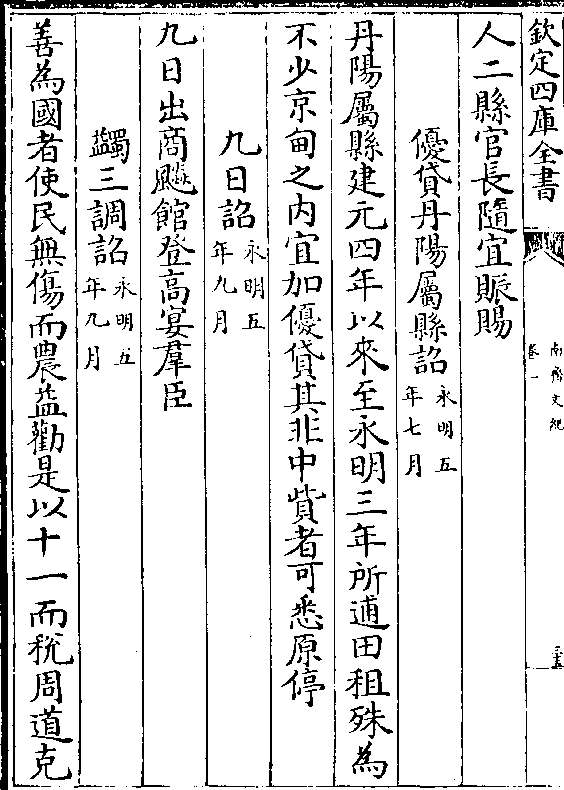 欽定四庫全書
南齊文紀
卷一
人二縣官長隨宜賑賜
優貸丹陽屬縣詔 永明五年七月
丹陽屬縣建元四年以來至永明三年所逋田租殊為
不少京甸之内宜加優貸其非中貲者可悉原停
九日詔 永明五年九月
九日出商飈館登高宴羣臣
蠲三調詔 永明五年九月
善為國者使民無傷而農益勸是以十一而稅周道克